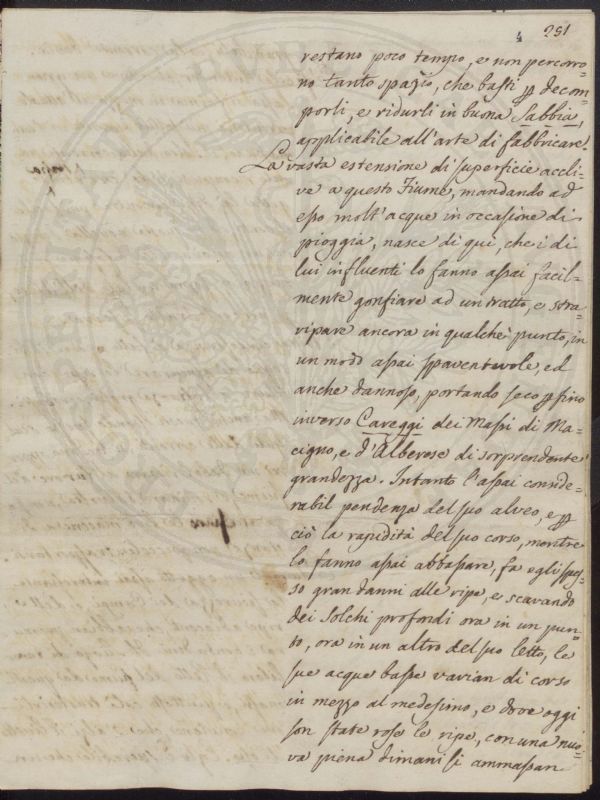 4 291
restano poco tempo, e non percorro=
no tanto spazio, che basti p decom=
porli, e ridurli in buona Sabbia,
applicabile all'arte di fabbricare.
La vasta estensione di superficie accli=
ve a questo Fiume, mandando ad
esso molt'acque in occasione di
pioggia, nasce di qui, che i di
lui influenti lo fanno assai facil=
mente gonfiare ad un tratto, e stra=
ripare ancora in qualche punto, in
un modo assai spaventevole, ed
anche dannoso, portando seco p fino
inverso Careggi dei Massi di Ma=
cigno, e d'Alberese di sorprendente
grandezza. Intanto l'assai conside=
rabil pendenza del suo alveo, e p
ciò la rapidità del suo corso, mentre
lo fanno assai abbassare, fa egli spes=
so gran danni alle ripe, e scavando
dei solchi profondi ora in un pun=
to, ora in un altro del suo letto, le
sue acque basse varian di corso
in mezzo al medesimo, e dove oggi
son state rose le ripe, con una nuo=
va piena dimani si ammassan